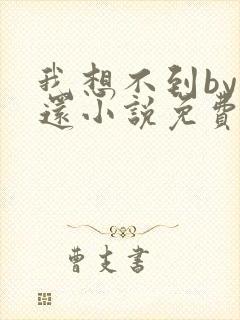 我想不到by
還小說免費
曹支書